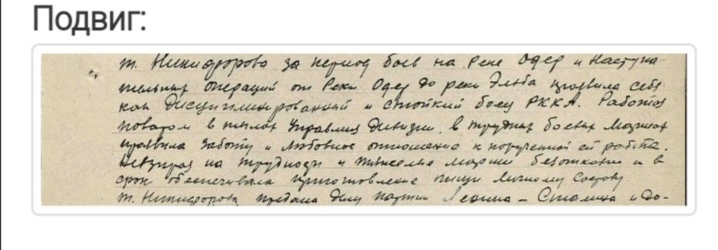 Подвиг:
т. Никифорова за период боев на Реке Одер и наступа
тельных операций от Реки Одер до реки Эльба проявила себя
как дисциплинированный и стойкий боец РККА. Работая
поваром в тылах Управлен дивизии, в трудных боевых маршах
проявила заботу и любовное отношение к порученной ей работе.
Невзирая на трудности и тяжелые марши безотказно и в
срок обеспечивала приготовление пищи личному составу
т. Никифорова предана делу партии Ленина – Сталина и до-